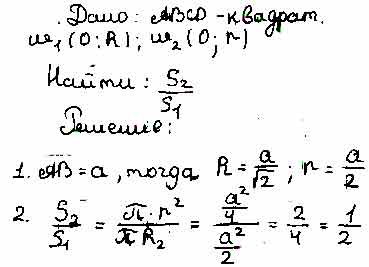 Дано: ABCD - квадрат.
w₁(O; R); w₂(O; r)
Найти: S₂/S₁
Решение:
1. AB = a, тогда R = a/√2; r = a/2
2. S₂/S₁ = (π · r²)/(π R₂) = (a²/4)/(a²/2) = 2/4 = 1/2